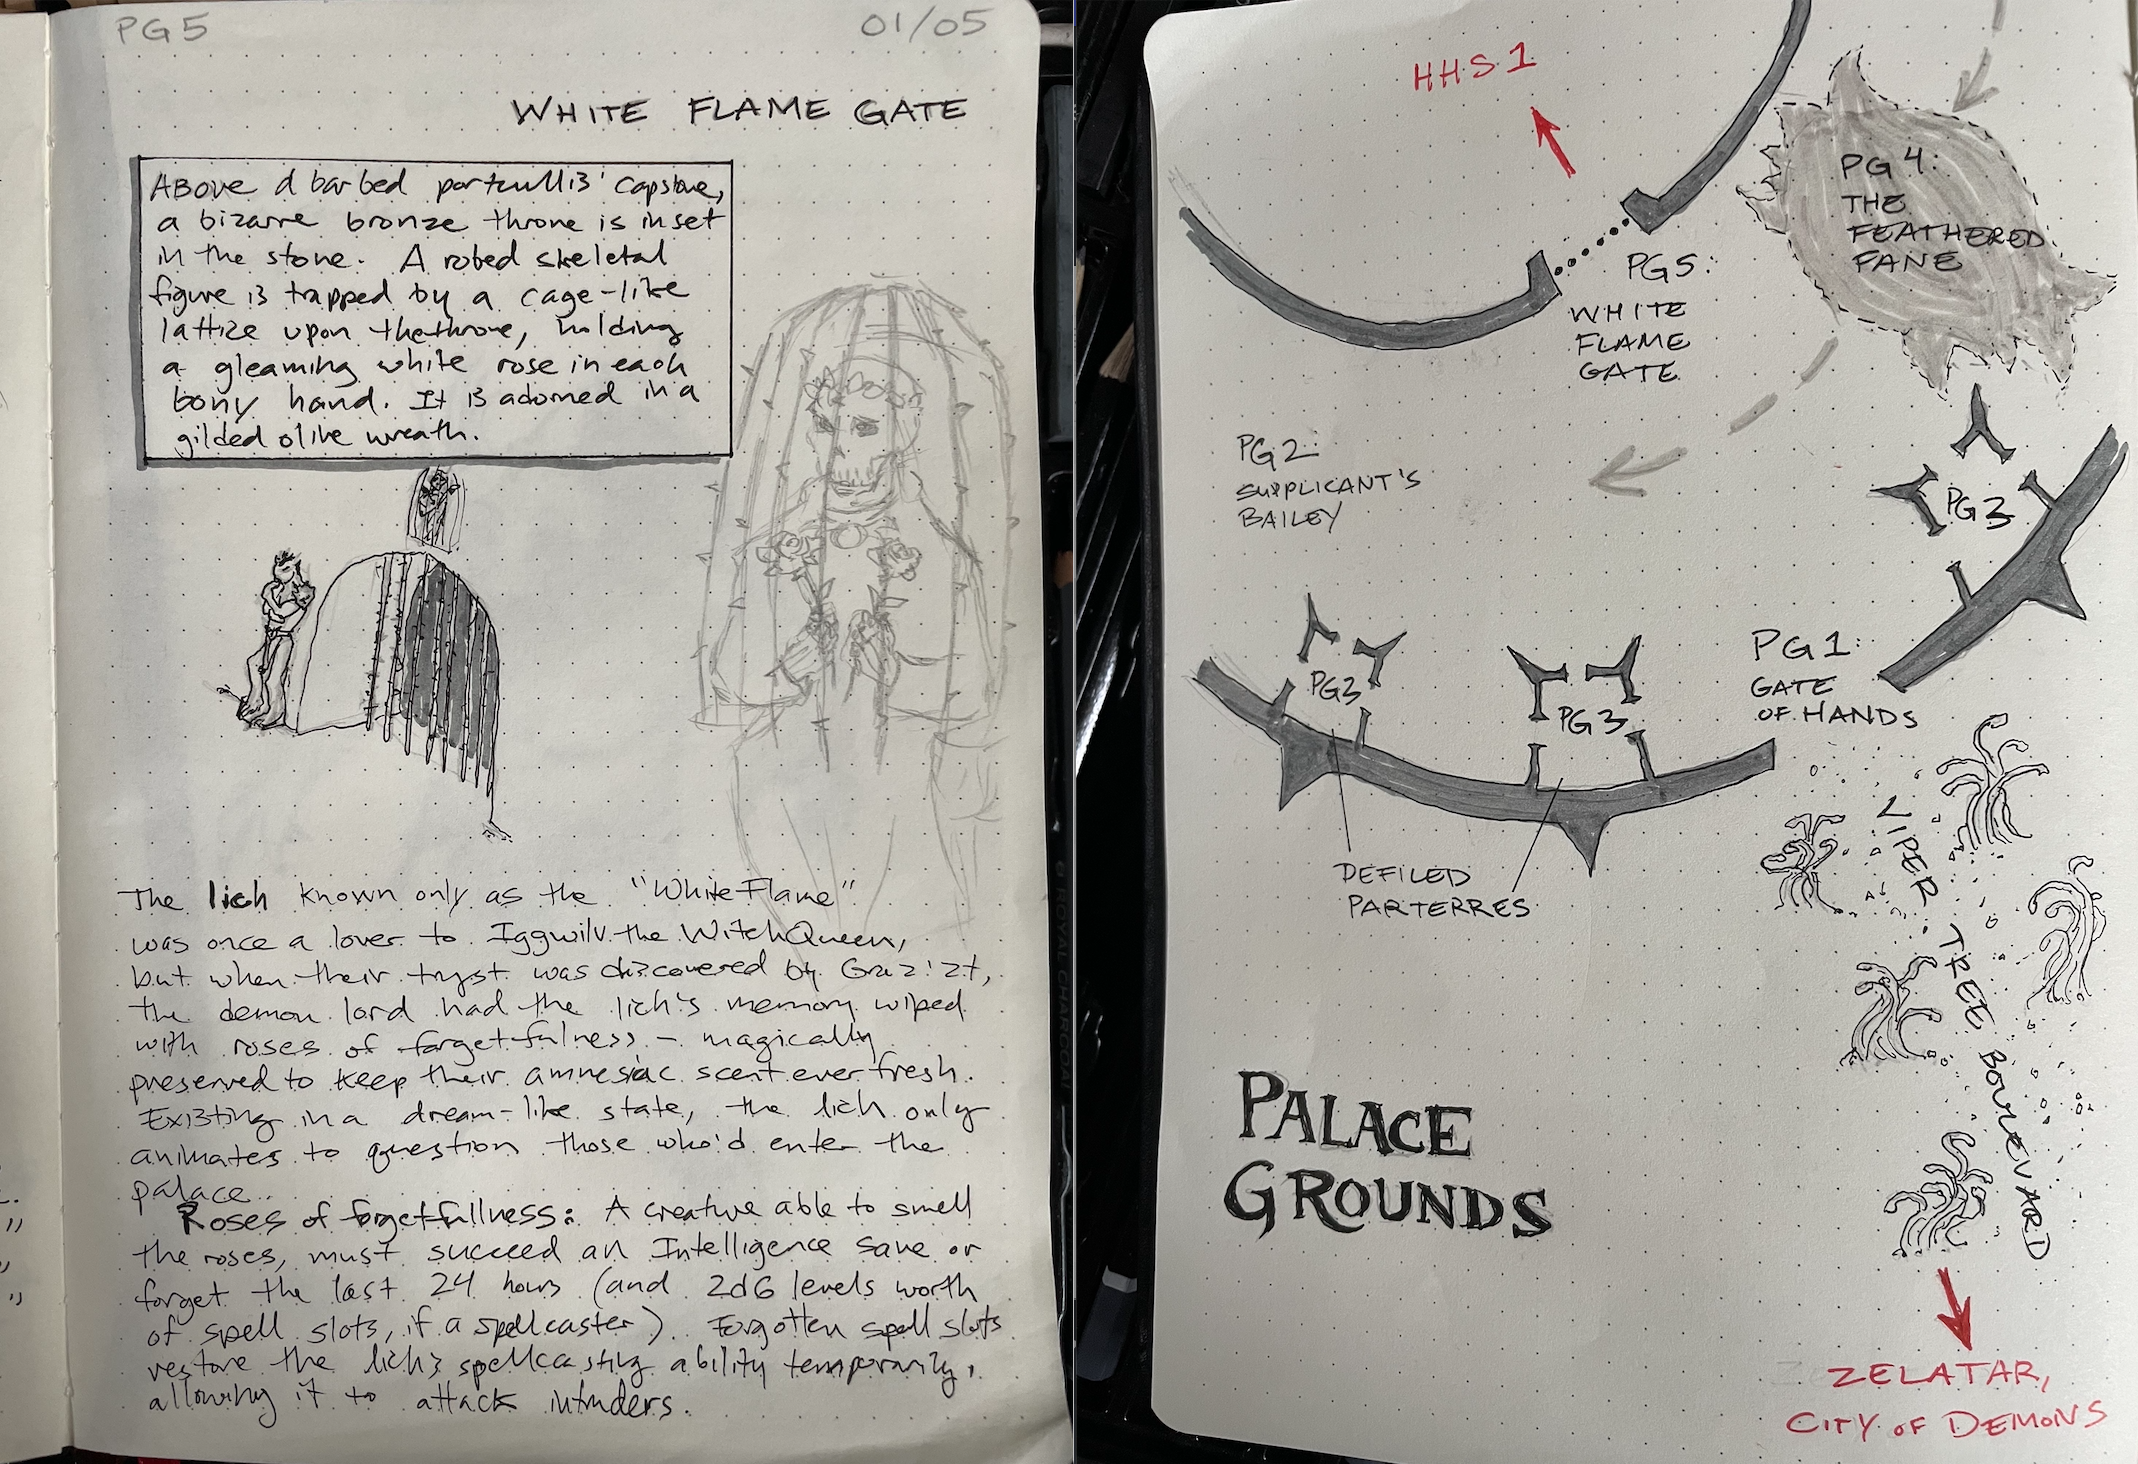 PG5
01/05
WHITE FLAME GATE
Above a barbed portcullis' capstone,
a bizarre bronze throne is inset
in the stone. A robed skeletal
figure is trapped by a cage-like
lattice upon the throne, holding
a gleaming white rose in each
bony hand. It is adorned in a
gilded olive wreath.
The lich known only as the "White Flame"
was once a lover to Iggwilv the Witch Queen,
but when their tryst was discovered by Graz'zt,
the demon lord had the lich's memory wiped
with roses of forgetfulness – magically
preserved to keep their amnesiac scent ever fresh.
Existing in a dream-like state, the lich only
animates to question those who'd enter the
palace.
Roses of forgetfullness: A creature able to smell
the roses, must succeed an Intelligence save or
forget the last 24 hours (and 2d6 levels worth
of spell slots, if a spellcaster). Forgotten spell slots
restore the lich's spellcasting ability temporarily,
allowing it to attack intruders.
© ROYAL CHARCOAL
HHS1
PG4:
THE
FEATHERED
FANE
PG5:
WHITE
FLAME
GATE
PG2:
SUPPLICANT'S
BAILEY
PG3
PG3
PG3
PG1:
GATE
OF HANDS
DEFILED
PARTERRES
VIPER TREE BOULEVARD
PALACE
GROUNDS
ZELATAR,
CITY OF DEMONS